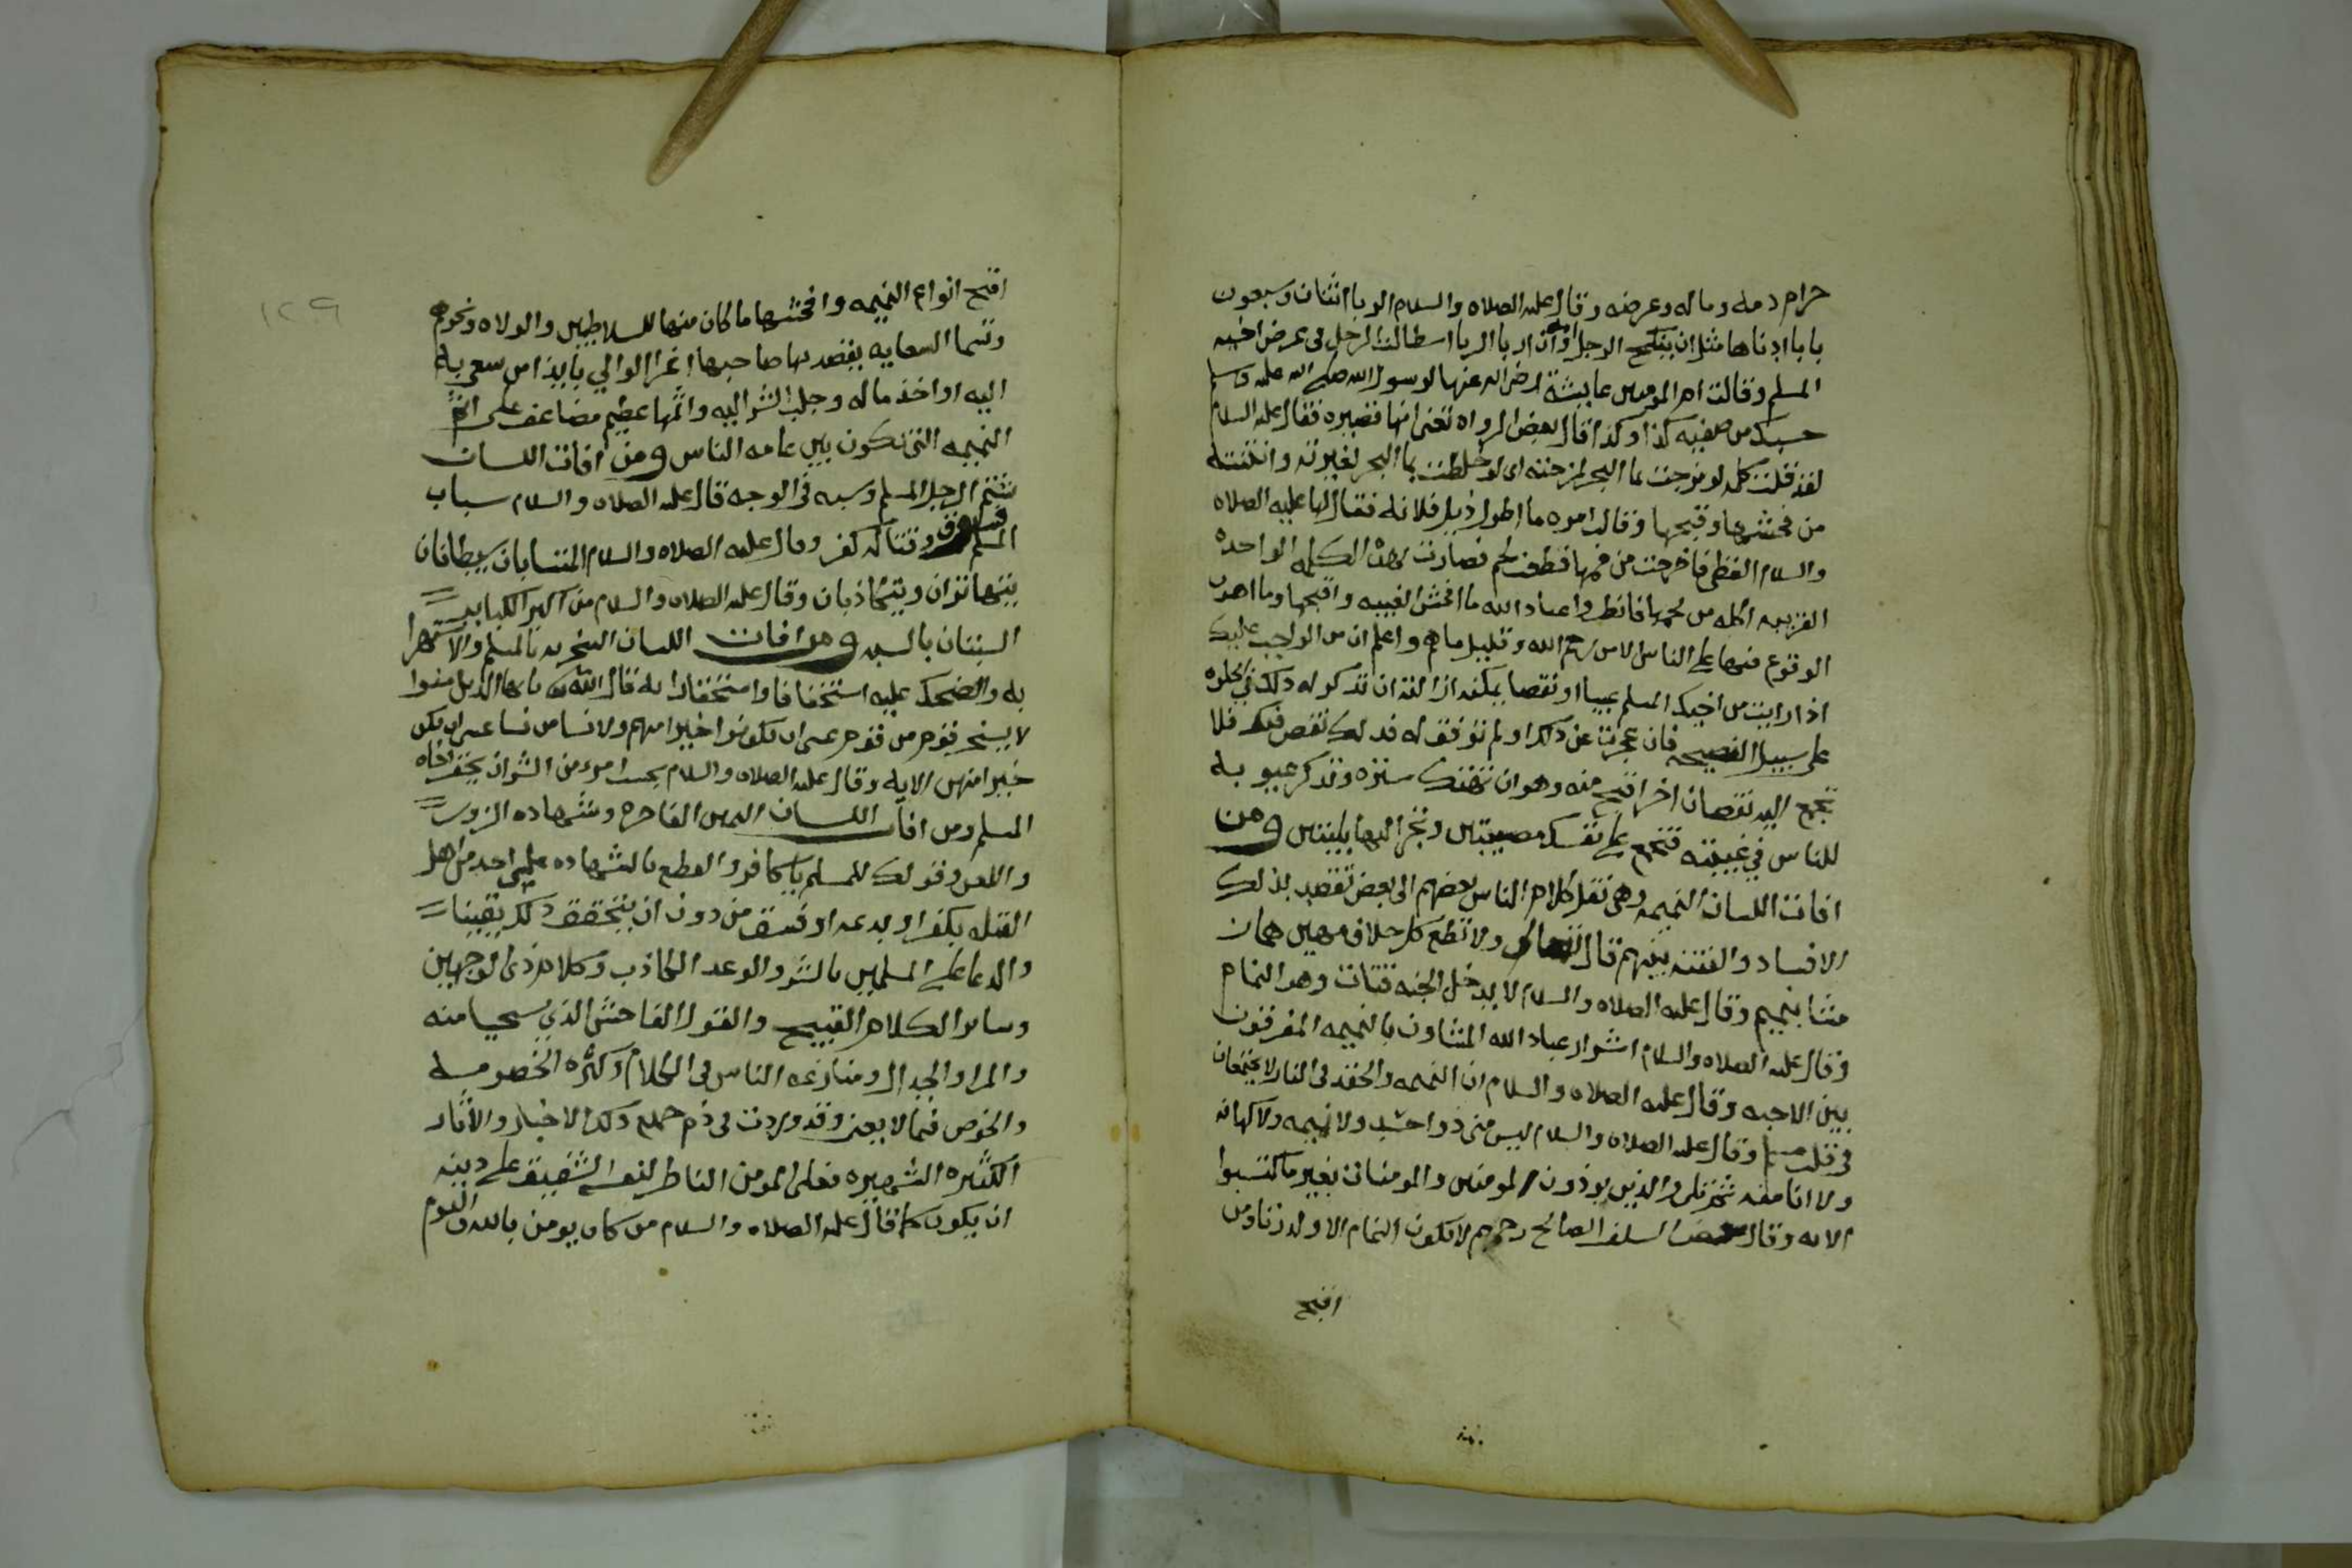 حرام دمه وماله وعرضه وقال عليه الصلاه والسلام الربا اثنتان وسبعون
بابا ادناها مثل ان ينكح الرجل امه وان اربا الربا استطالت الرجل فى عرض اخيه
المسلم وقالت ام المومنين عايشة رضى الله عنها لرسول الله صلى الله عليه وسلم
حسبك من صفيه كذا وكذا قال بعض الرواه تعنى انها قصيره فقال عليه السلام
لقد قلت كلمه لو مزجت بماء البحر لمزجته اى لو خلطت بماء البحر لغيرته وانتنته
من فحشها وقبحها وقالت امره ما اطول ذيل فلانه فقال لها عليه الصلاه
والسلام الفظى فاخرجت من فمها قطعت لحم فصارت بهذه الكلمه الواحده
القريبه اكله من لحمها فانظروا عباد الله ما افحش الغيبه واقبحها وما اهون
الوقوع فيها على الناس الا من رحم الله وقليل ما هم واعلم ان من الواجب عليك
اذا رايت من اخيك المسلم عيبا او نقصا يمكنه ازالته ان تذكر له ذلك في الخلوه
على سبيل النصيحه فان عجزت عن ذلك او لم توفق له فذلك نقص فيك فلا
تجمع اليه نقصانا اخر اقبح منه وهو ان تهتك ستره وتذكر عيوبه
للناس في غيبته فتجمع على نفسك مصيبتين وتجر اليها بليتين ومن
افات اللسان النميمه وهى نقل كلام الناس بعضهم الى بعض تقصد بذلك
الافساد والفتنه بينهم قال تعالى ولا تطع كل حلاف مهين هماز
مشا بنميم وقال عليه الصلاه والسلام لا يدخل الجنه قتات وهو النمام
وقال عليه الصلاه والسلام اشرار عباد الله المشاون بالنميمه المفرقون
بين الاحبه وقال عليه الصلاه والسلام ان النميمه والحقد فى النار لا يجتمعان
فى قلب مسلم وقال عليه الصلاه والسلام ليس منى ذو حسد ولا نميمه ولا كهانه
ولا انا منه ثم تلى والذين يوذون المومنين والمومنات بغير ما اكتسبوا
الايه وقال بعض السلف الصالح رحمهم لا يكون النمام الا ولد زنا ومن
اقبح
١٢٩
اقبح انواع النميمه وافحشها ما كان منها للسلاطين والولاه ونحوهم
وتسما السعايه يقصد بها صاحبها اغرا الوالي بايذا من سعى به
اليه او اخذ ماله وجلب الشر اليه واثمها عظيم مضاعف على اثم
النميمه التى تكون بين عامه الناس ومن افات اللسان
شتم الرجل المسلم وسبه فى الوجه قال عليه الصلاه والسلام سباب
المسلم فسوق وقتاله كفر وقال عليه الصلاه والسلام المتسابان شيطانان
يتهاتران ويتكاذبان وقال عليه الصلاه والسلام من اكبر الكباير
السبتان بالسبه ومن افات اللسان السخريه بالمسلم والاستهزا
به والضحك عليه استخفافا واستحقارا به قال الله تعالى يا ايها الذين امنوا
لا يسخر قوم من قوم عسى ان يكونوا خيرا منهم ولا نسا من نسا عسى ان يكن
خيرا منهن الايه وقال عليه الصلاه والسلام بحسب امرء من الشر ان يحقر اخاه
المسلم ومن افات اللسان اليمين الفاجره وشهاده الزور
واللعن وقولك للمسلم يا كافر والقطع بالشهاده على احد من اهل
القبله بكفر او بدعه او فسق من دون ان يتحقق ذلك يقينا
والدعا على المسلمين بالشر والوعد الكاذب وكلام ذى الوجهين
وساير الكلام القبيح والقول الفاحش الذي يستحيا منه
والمرا والجدال ومنازعه الناس فى الكلام وكثره الخصومه
والخوض فيما لا يعنى وقد وردت فى ذم جميع ذلك الاخبار والاثار
الكثيره الشهيره فعلى المومن الناظر لنفسه الشفيق على دينه
ان يكون كما قال عليه الصلاه والسلام من كان يومن بالله واليوم